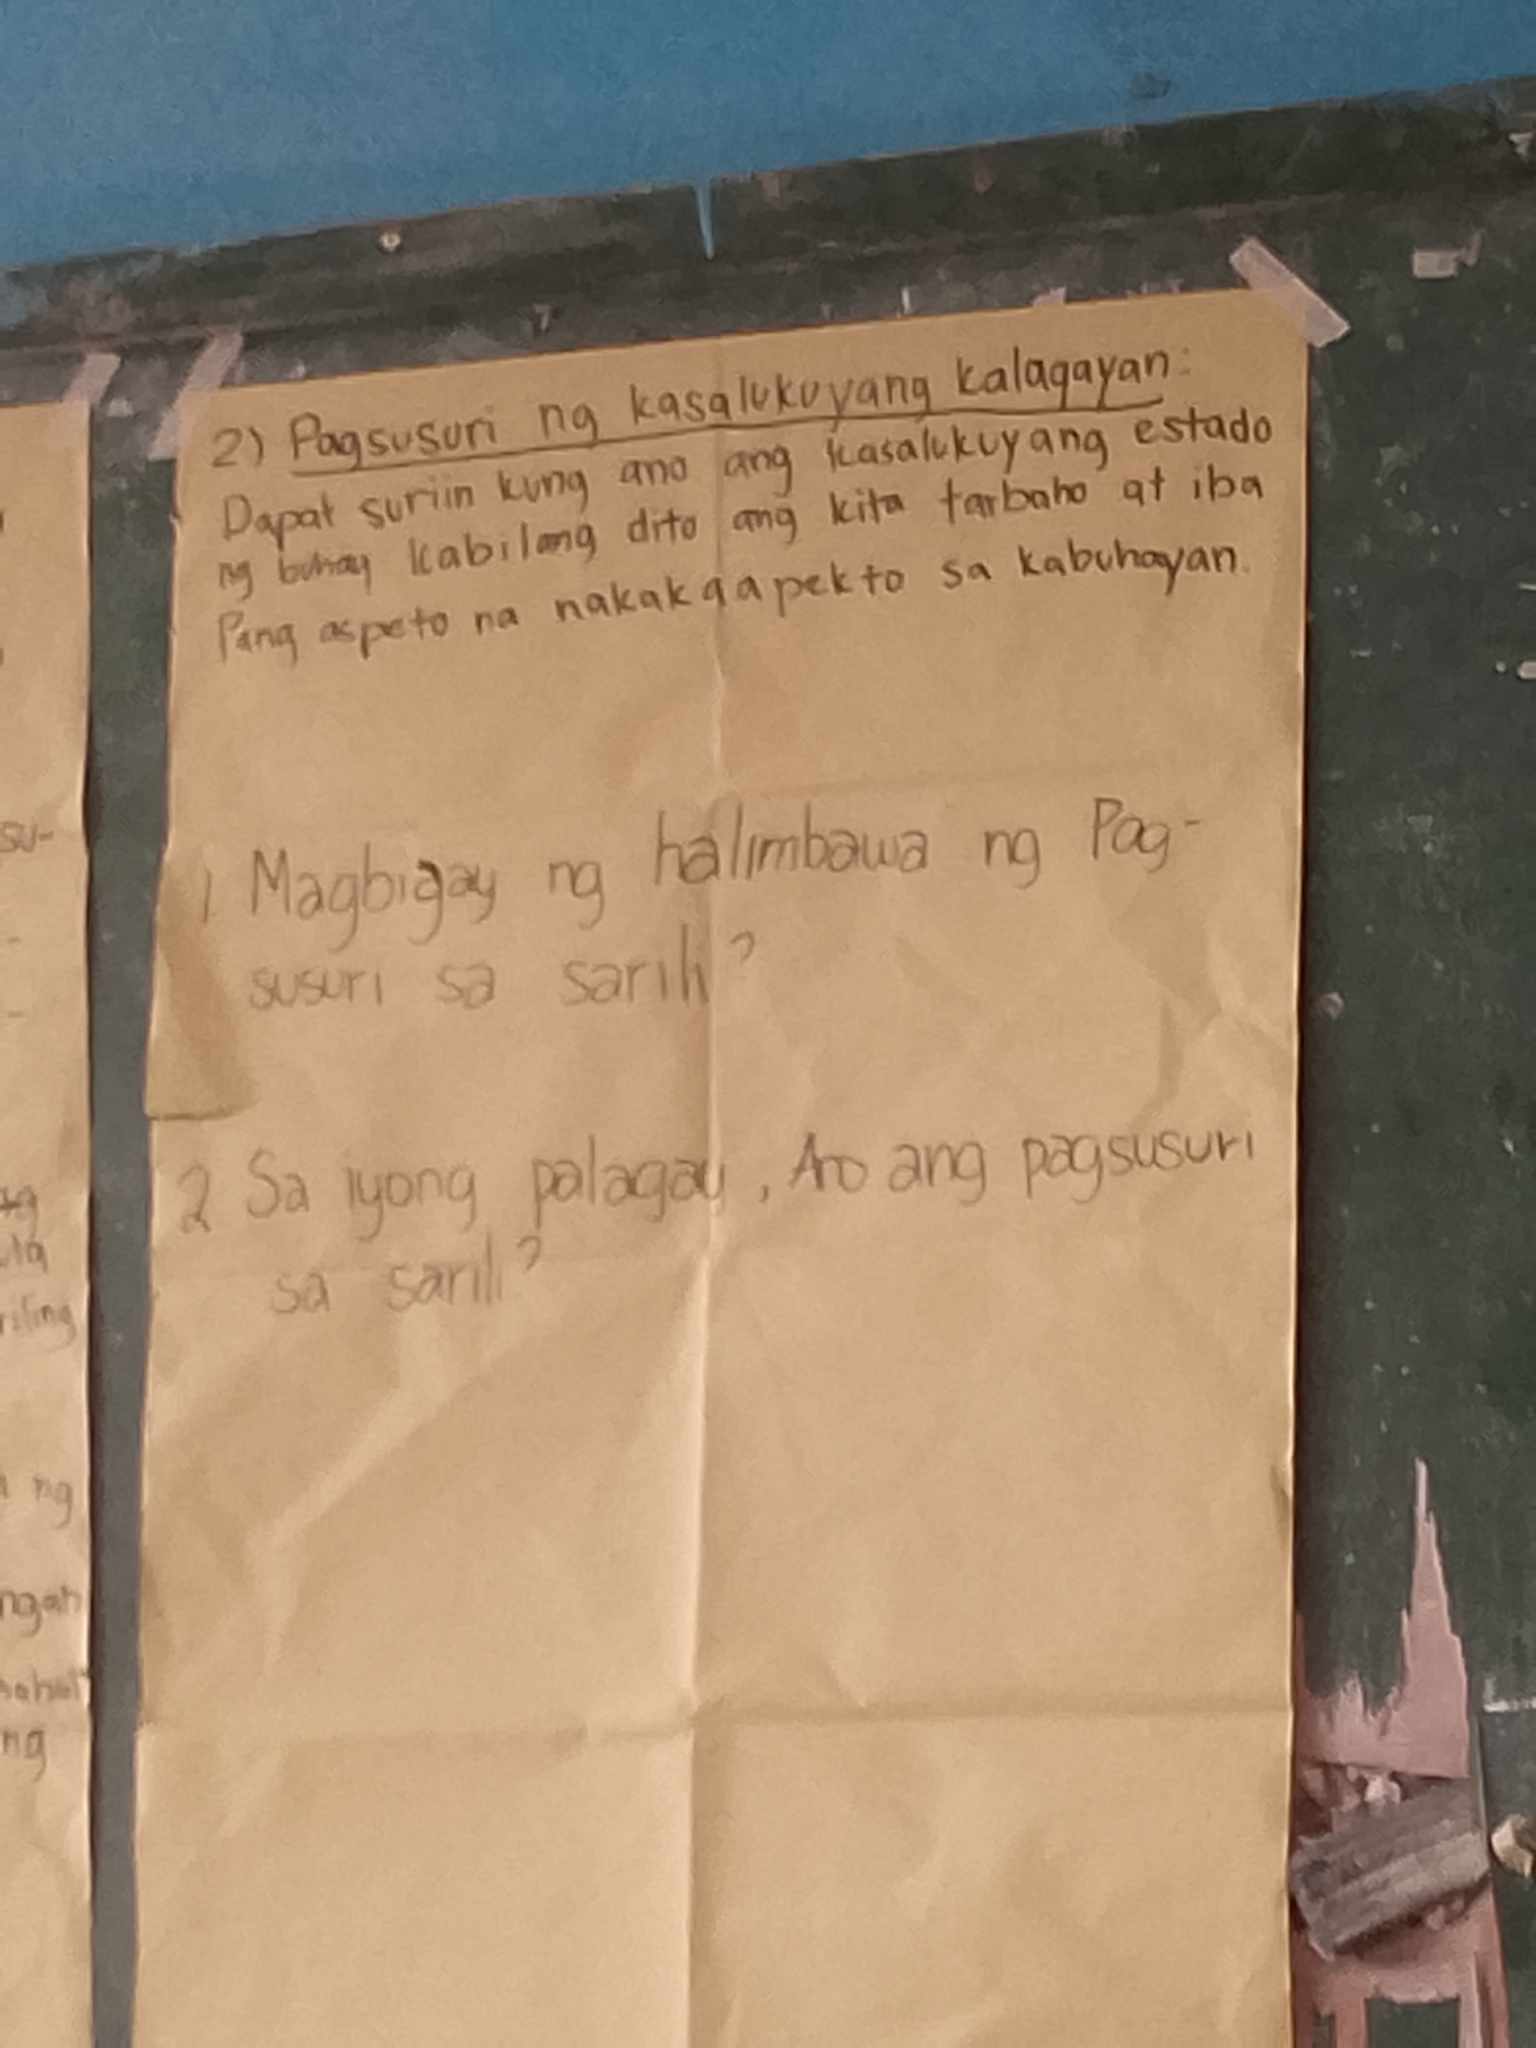 2) Pagsusuri ng kasalukuyang kalagayan:
Dapat suriin kung ano ang kasalukuyang estado
ng buhay kabilang dito ang kita tarbaho at iba
Pang aspeto na nakakaapekto sa kabuhayan.
1 Magbigay ng halimbawa ng Pag-
susuri sa sarili?
2 Sa iyong palagay, Ano ang pagsusuri
sa sarili?
su-
ng
ng